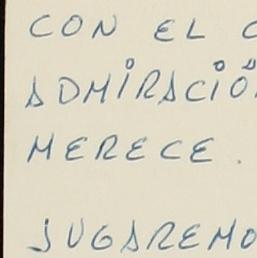 CON EL C
ADMIRACIÓ
MERECE.
JUGAREMO